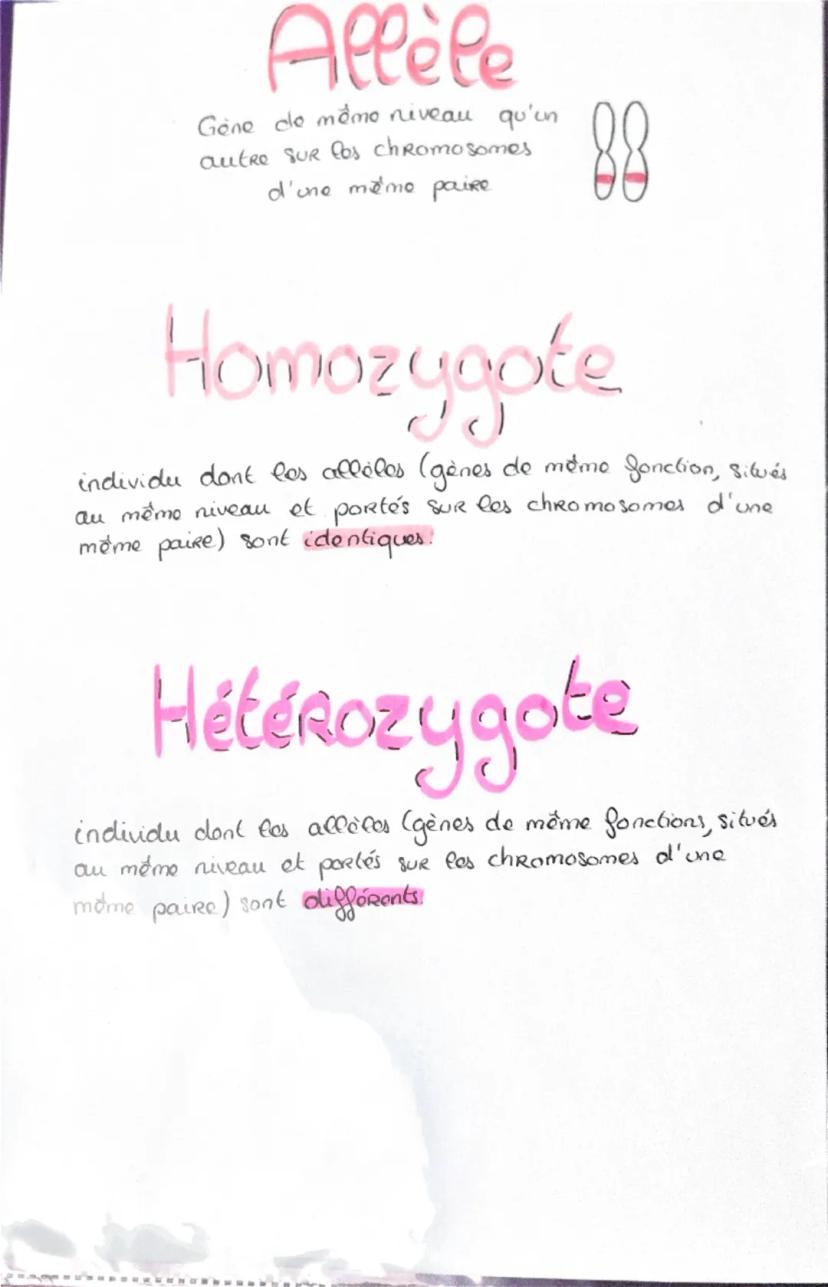 Allèle
Gène de même niveau qu'un
autre sur les chromosomes
d'une même paire
Homozygote
individu dont les allèles (gènes de même fonction, situés
au même niveau et portés sur les chromosomes d'une
même paire) sont identiques.
Hétérozygote
individu dont les allèles (gènes de même fonctions, situés
au même niveau et portés sur les chromosomes d'une
même paire) sont différents.